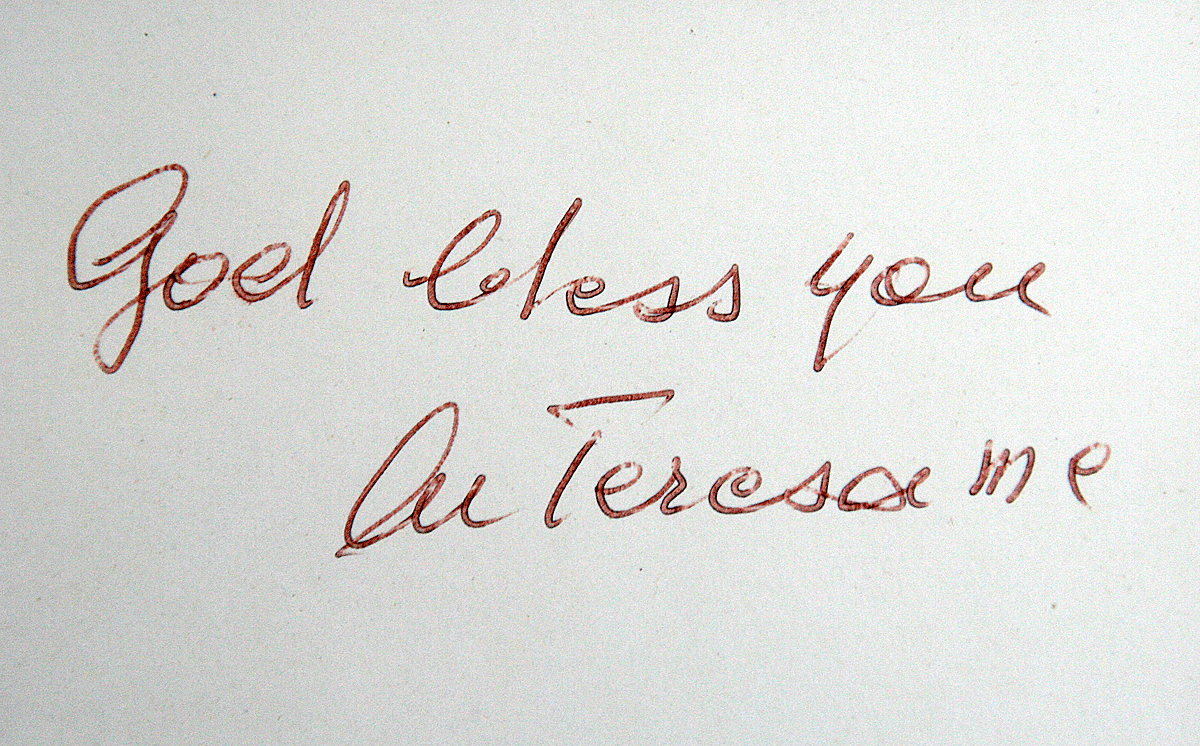 God bless you
lu Teresa mc